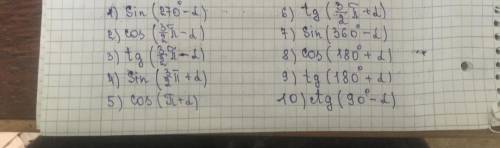 1) Sin (270° - α)
2) cos (3/2 π - α)
3) tg (3/2 π - α)
4) Sin (3/2 π + α)
5) cos (π + α)
6) tg (3/2 π + α)
7) Sin (360° - α)
8) cos (180° + α)
9) tg (180° + α)
10) ctg (90° - α)